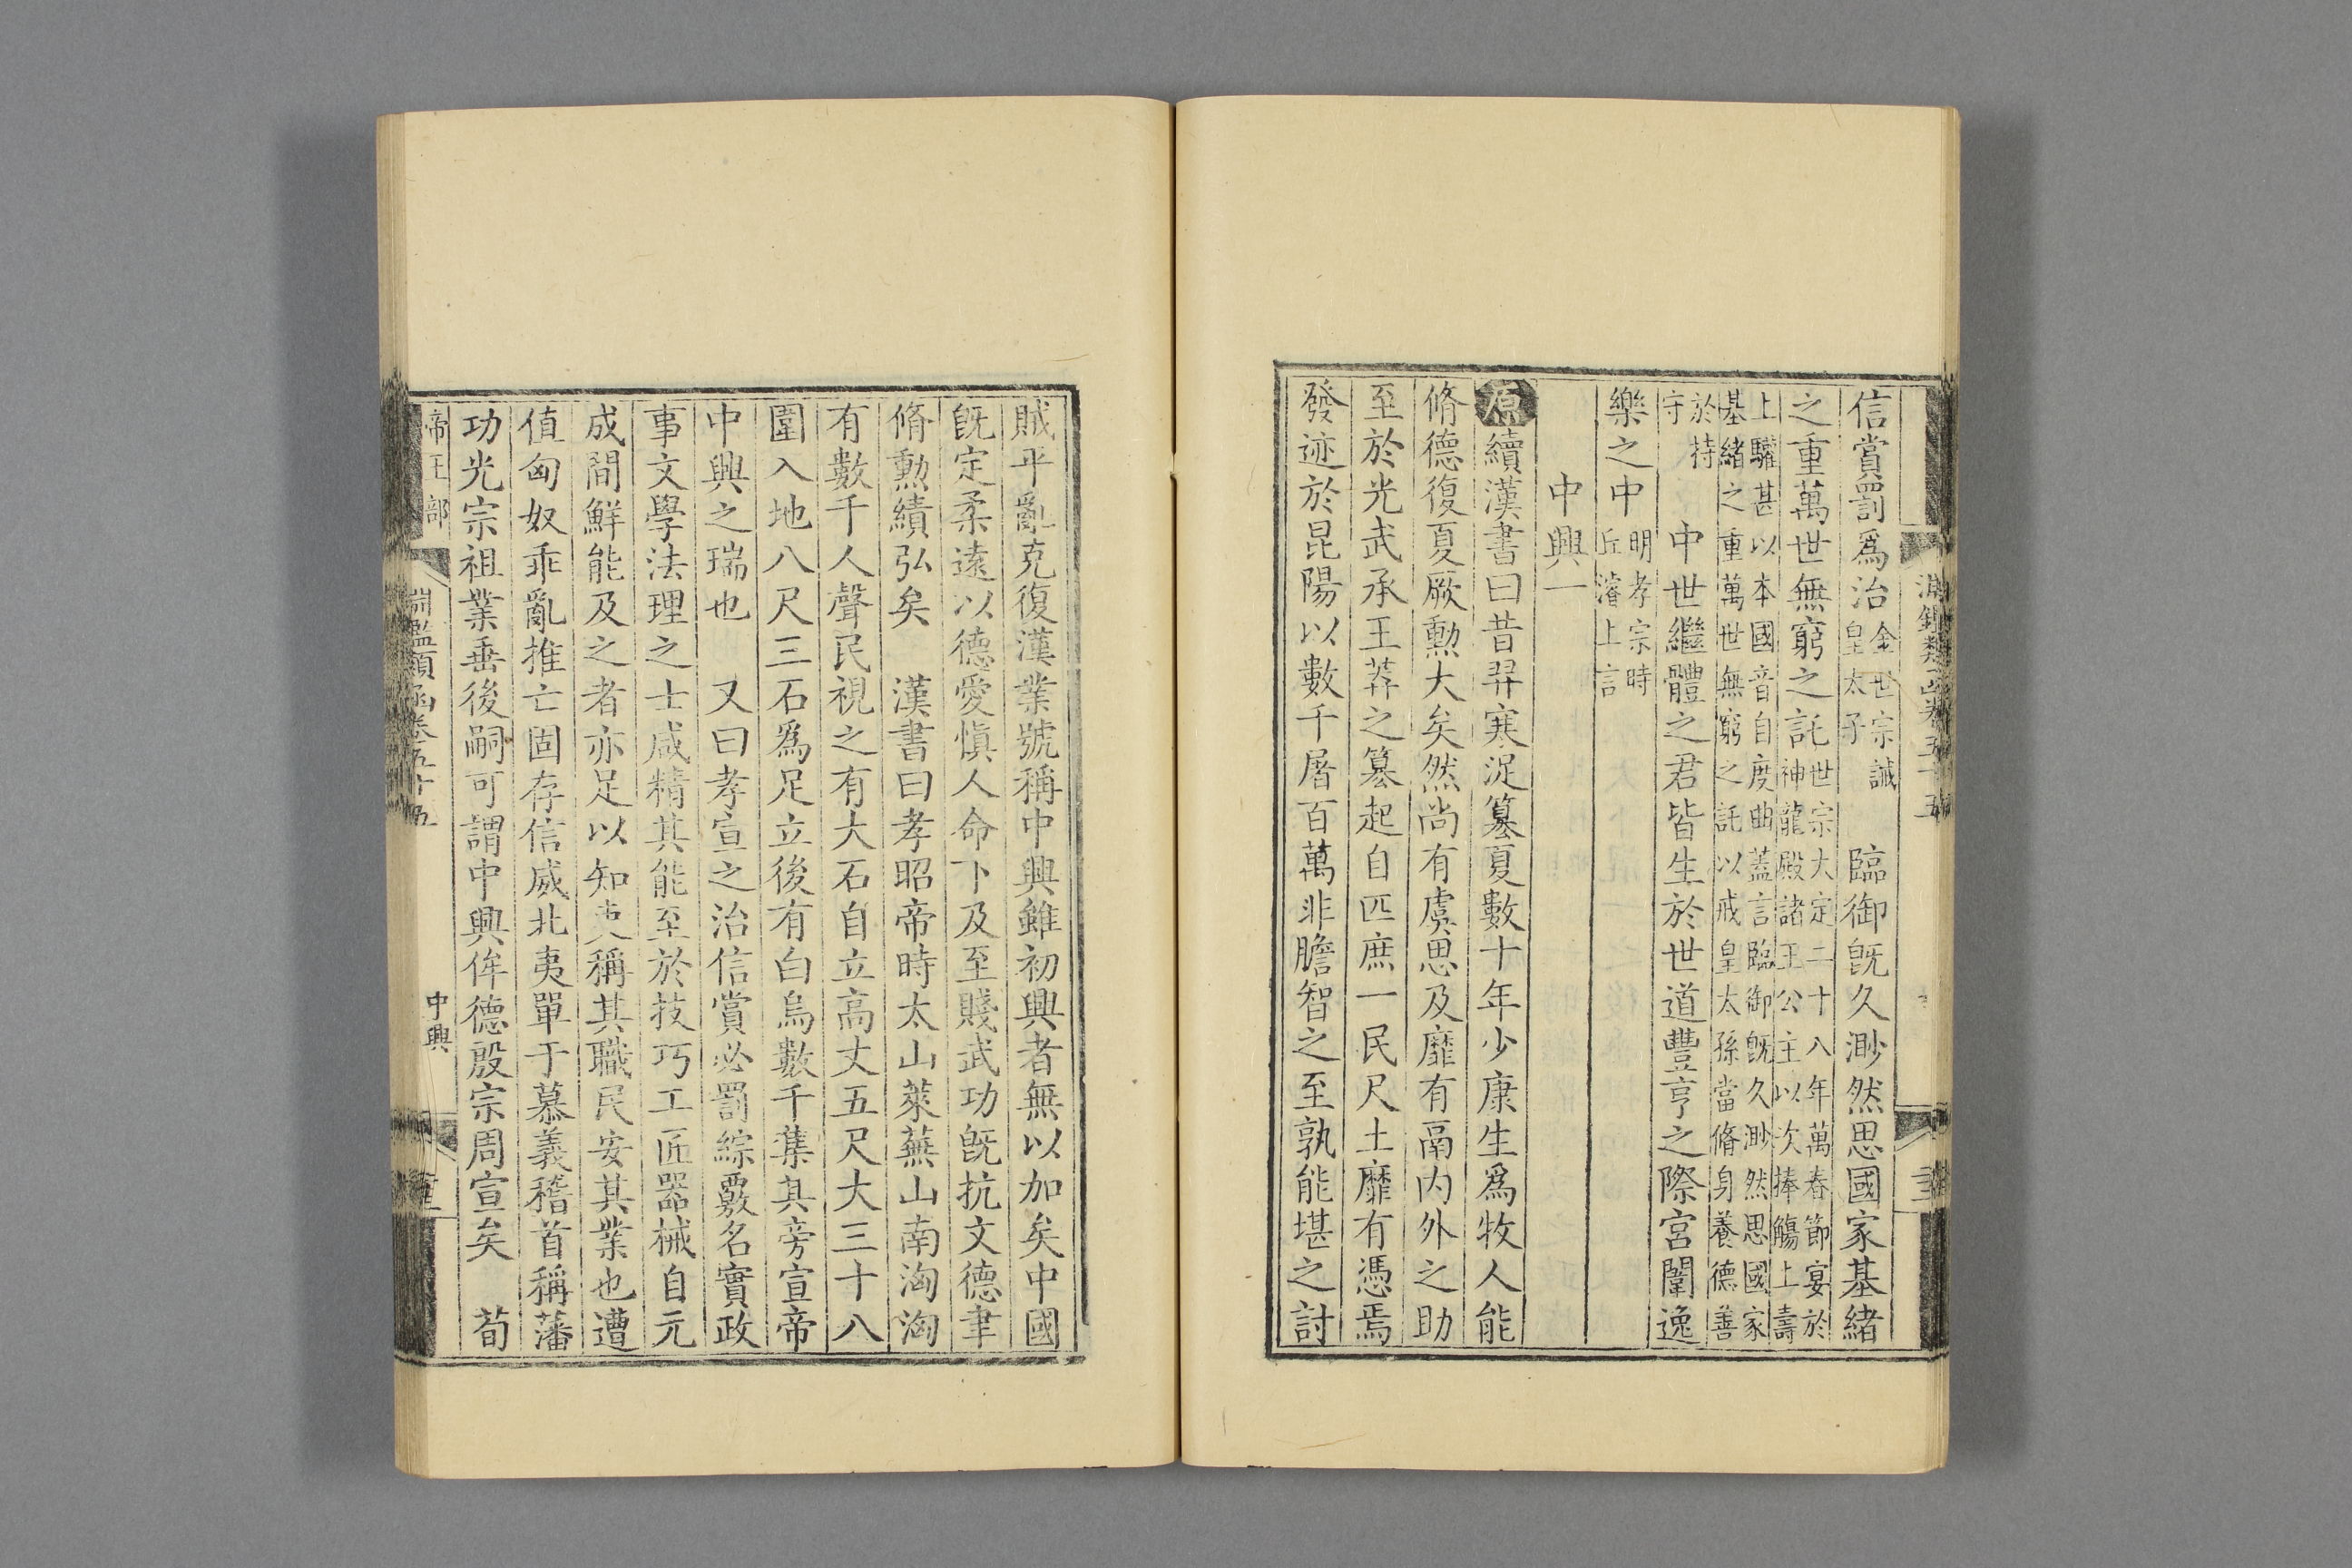 淵鑑類函卷五十五
信賞罰爲治金世宗誡皇太子 臨御旣久渺然思國家基緒
之重萬世無窮之託世宗大定二十八年萬春節宴於神龍殿諸王公主以次捧觴上壽
上驩甚以本國音自度曲蓋言臨御旣久渺然思國家基緒之重萬世無窮之託以戒皇太孫當脩身養德善
於持守 中世繼體之君皆生於世道豐亨之際宮闈逸
樂之中明孝宗時丘濬上言
中興一
原續漢書曰昔羿寒浞簒夏數十年少康生爲牧人能
脩德復夏厥勲大矣然尚有虞思及靡有鬲内外之助
至於光武承王莽之簒起自匹庶一民尺土靡有憑焉
發迹於昆陽以數千屠百萬非膽智之至孰能堪之討
賊平亂克復漢業號稱中興雖初興者無以加矣中國
旣定柔遠以德愛愼人命下及至賤武功旣抗文德聿
脩勲績弘矣 漢書曰孝昭帝時太山萊蕪山南洶洶
有數千人聲民視之有大石自立高丈五尺大三十八
圍入地八尺三石爲足立後有白烏數千集其旁宣帝
中興之瑞也 又曰孝宣之治信賞必罰綜覈名實政
事文學法理之士咸精其能至於技巧工匠器械自元
成間鮮能及之者亦足以知吏稱其職民安其業也遭
値匈奴乖亂推亡固存信威北夷單于慕義稽首稱藩
功光宗祖業垂後嗣可謂中興侔德殷宗周宣矣 荀
帝王部 淵鑑類函卷五十五 中興